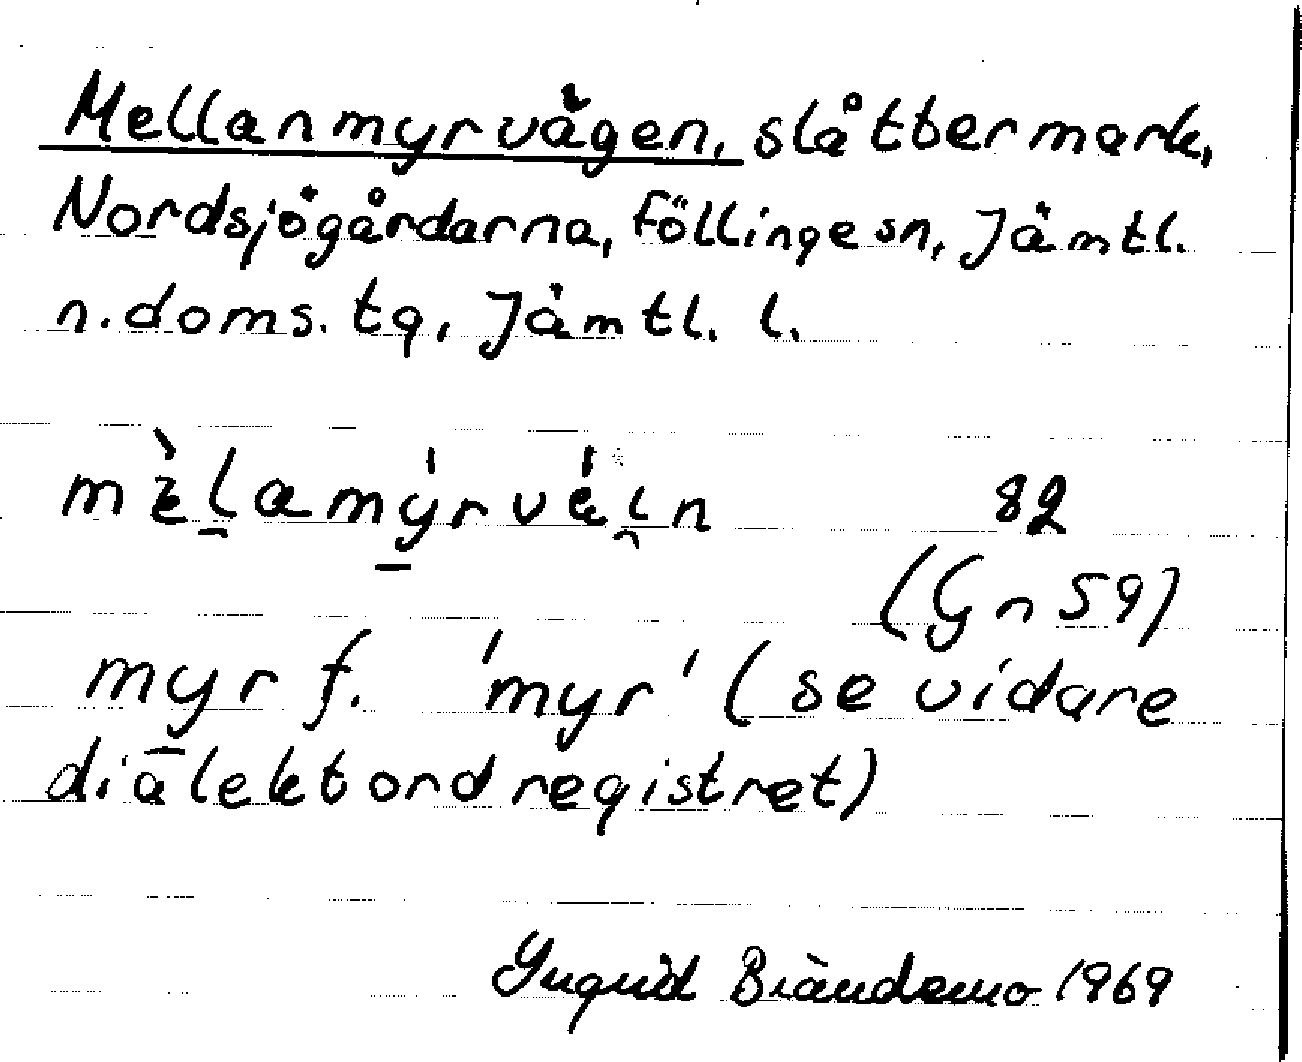 Mellanmyrvägen, slåttermark,
Nordsjögårdarna, Föllinge sn, Jämtl.
n. doms. tg, Jämtl. l.
82
(Gn 59)
myr f. 'myr' (se vidare
dialektordregistret)
Ingrid Brändemo 1969